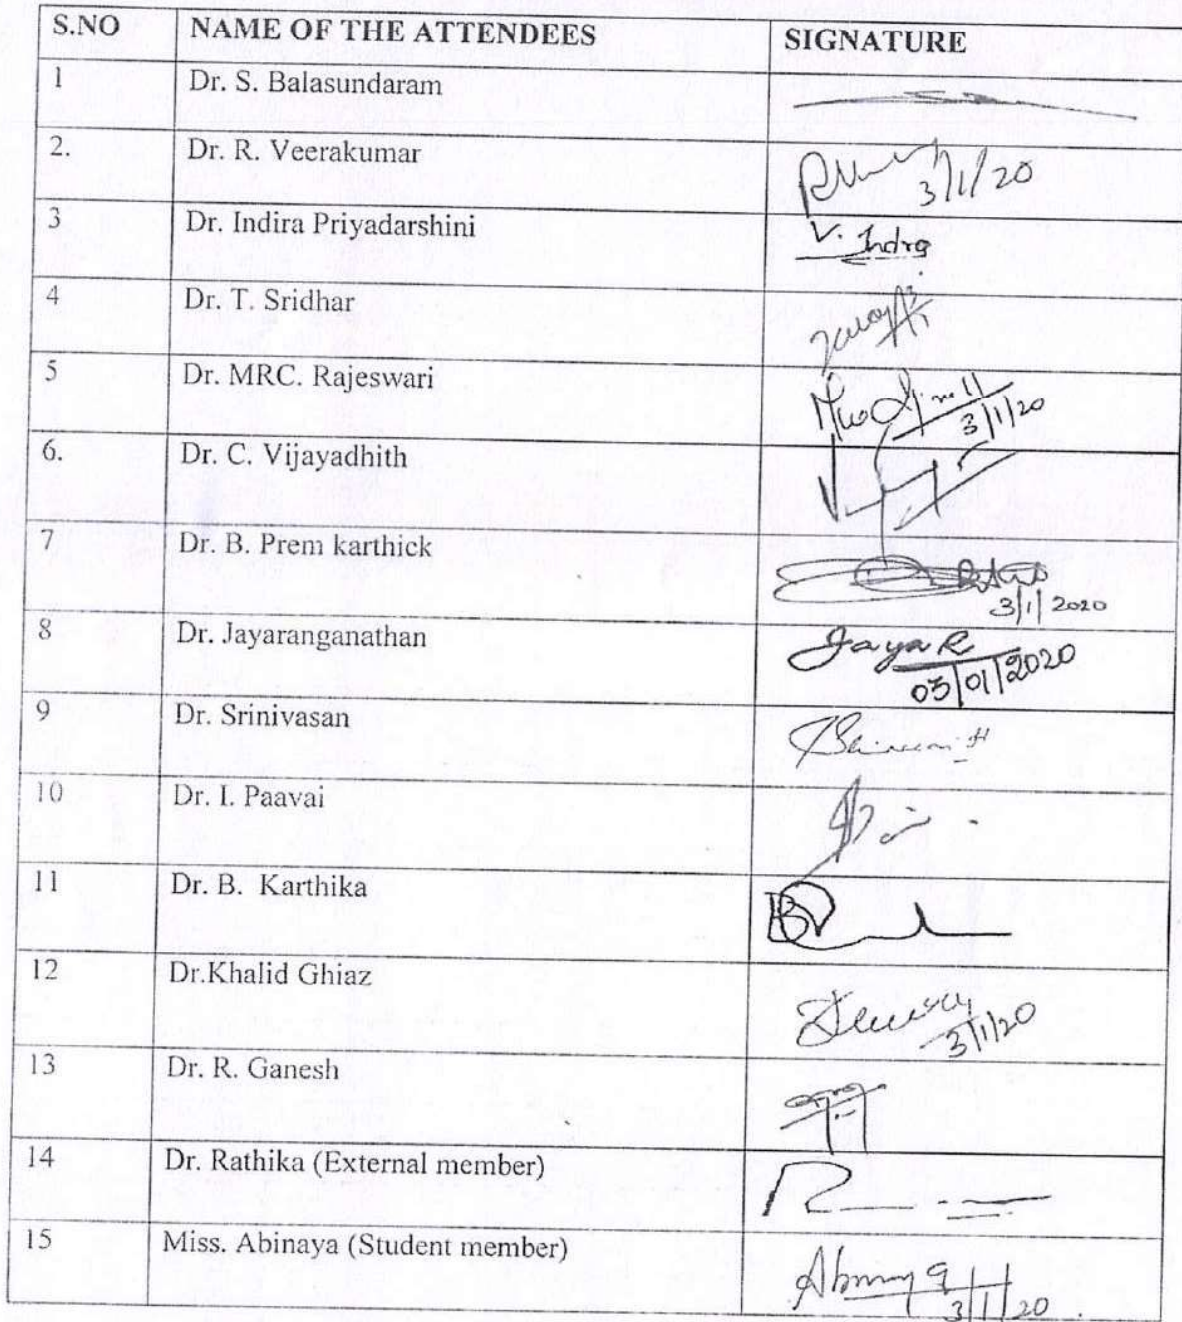 S.NO NAME OF THE ATTENDEES SIGNATURE
1 Dr. S. Balasundaram
2. Dr. R. Veerakumar 3/1/20
3 Dr. Indira Priyadarshini V. Indra
4 Dr. T. Sridhar
5 Dr. MRC. Rajeswari 3/1/20
6. Dr. C. Vijayadhith
7 Dr. B. Prem karthick 3/1/2020
8 Dr. Jayaranganathan Jaya R 03/01/2020
9 Dr. Srinivasan
10 Dr. I. Paavai
11 Dr. B. Karthika
12 Dr.Khalid Ghiaz 3/1/20
13 Dr. R. Ganesh
14 Dr. Rathika (External member)
15 Miss. Abinaya (Student member) 3/1/20